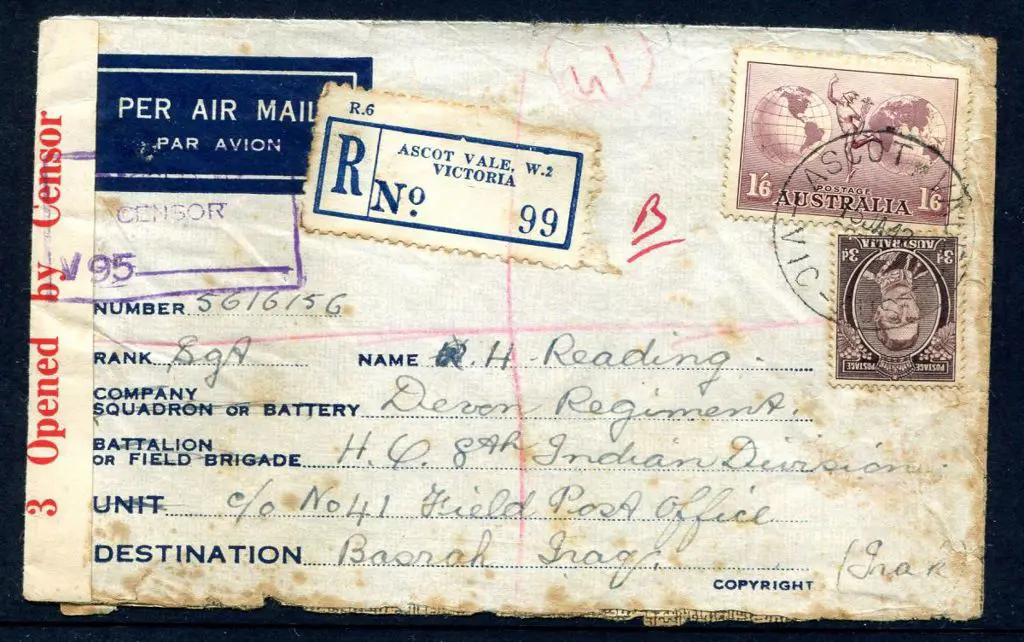 3 Opened by Censor
PER AIR MAIL
PAR AVION
R.6
R
No 99
ASCOT VALE, W.2
VICTORIA
41
B
1/6 POSTAGE 1/6
AUSTRALIA
ASCOT
VIC
CENSOR
V 95
3d AUSTRALIA 3d
POSTAGE POSTAGE
NUMBER 5616156
RANK Sgt NAME R.H. Reading.
COMPANY
SQUADRON OR BATTERY Devon Regiment.
BATTALION
OR FIELD BRIGADE H.Q. 8th Indian Division.
UNIT c/o No 41 Field Post Office
DESTINATION Basrah Iraq.
COPYRIGHT (Irak)